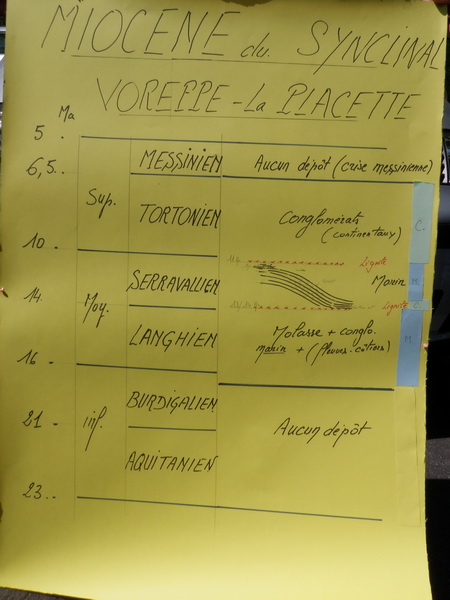 MIOCENE du SYNCLINAL
VOREPPE - La PLACETTE
Ma
5 .
6,5 ..
MESSINIEN
Aucun dépôt (crise messinienne)
Sup.
TORTONIEN
Conglomérats
(continentaux)
C.
10 .
Lignite
SERRAVALLIEN
Marin
M
14 .
Lignite
C
Moy.
LANGHIEN
Molasse + conglo.
marin + (fleuves côtiers)
M
16 .
BURDIGALIEN
21 .
inf.
Aucun dépôt
AQUITANIEN
23 ..